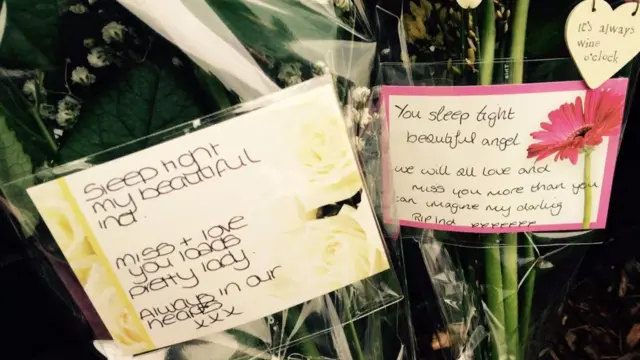 Sleep tight
my beautiful
ind.
miss + love
you loads
pretty lady.
Always in our
hearts
xxx
You sleep tight
beautiful angel
we will all love and
miss you more than you
can imagine my darling
Rip Ind xxxxxxxx
it's always
wine
o'clock